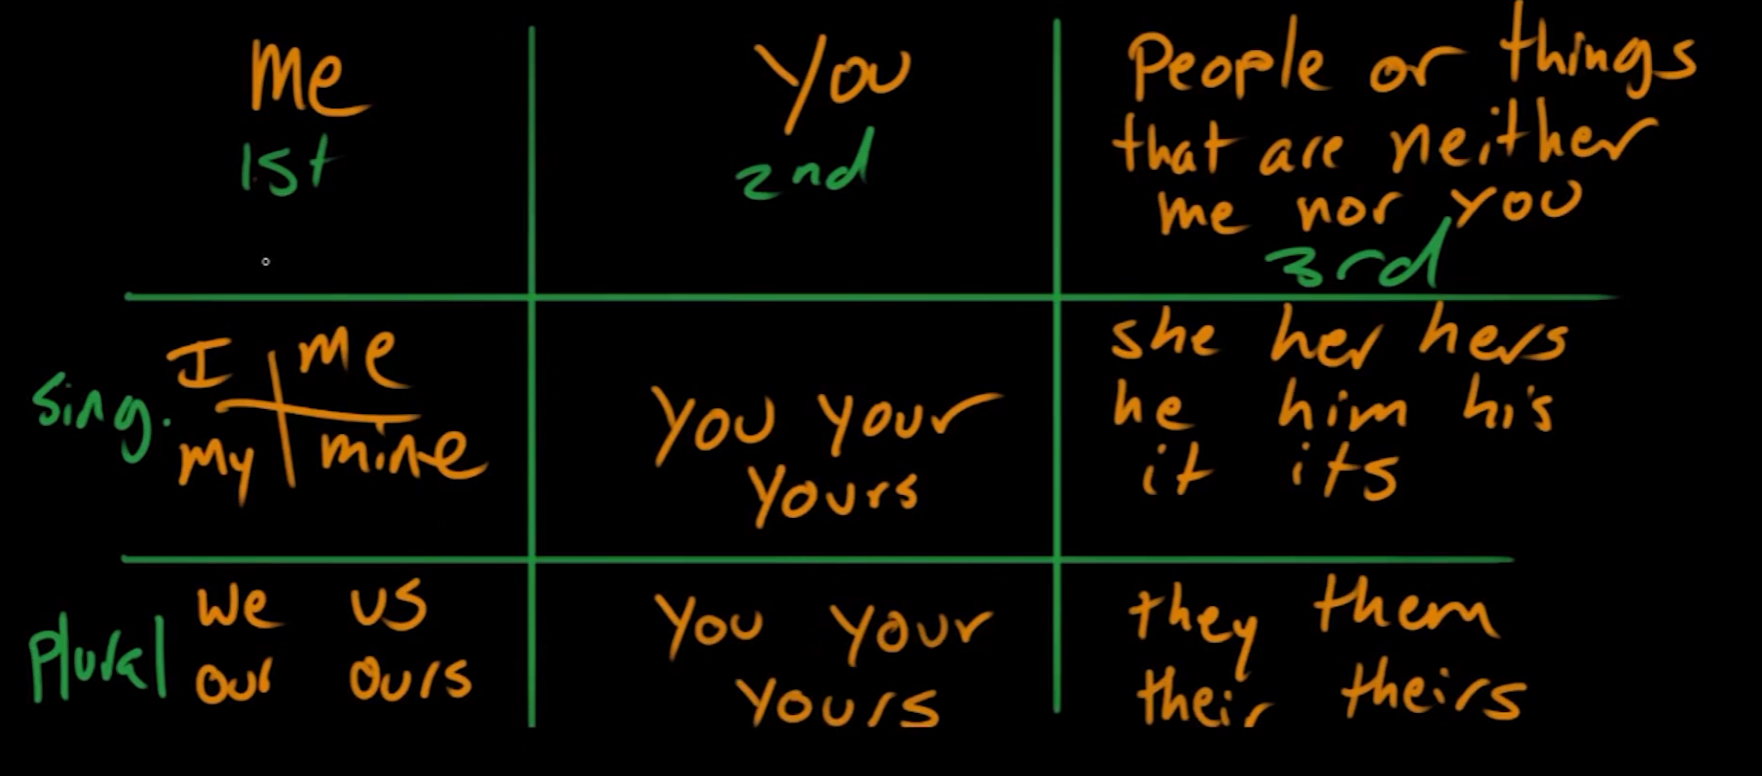 me
1st
You
2nd
People or things
that are neither
me nor you
3rd
Sing.
I me
my mine
you your
yours
she her hers
he him his
it its
Plural
we us
our ours
you your
yours
they them
their theirs